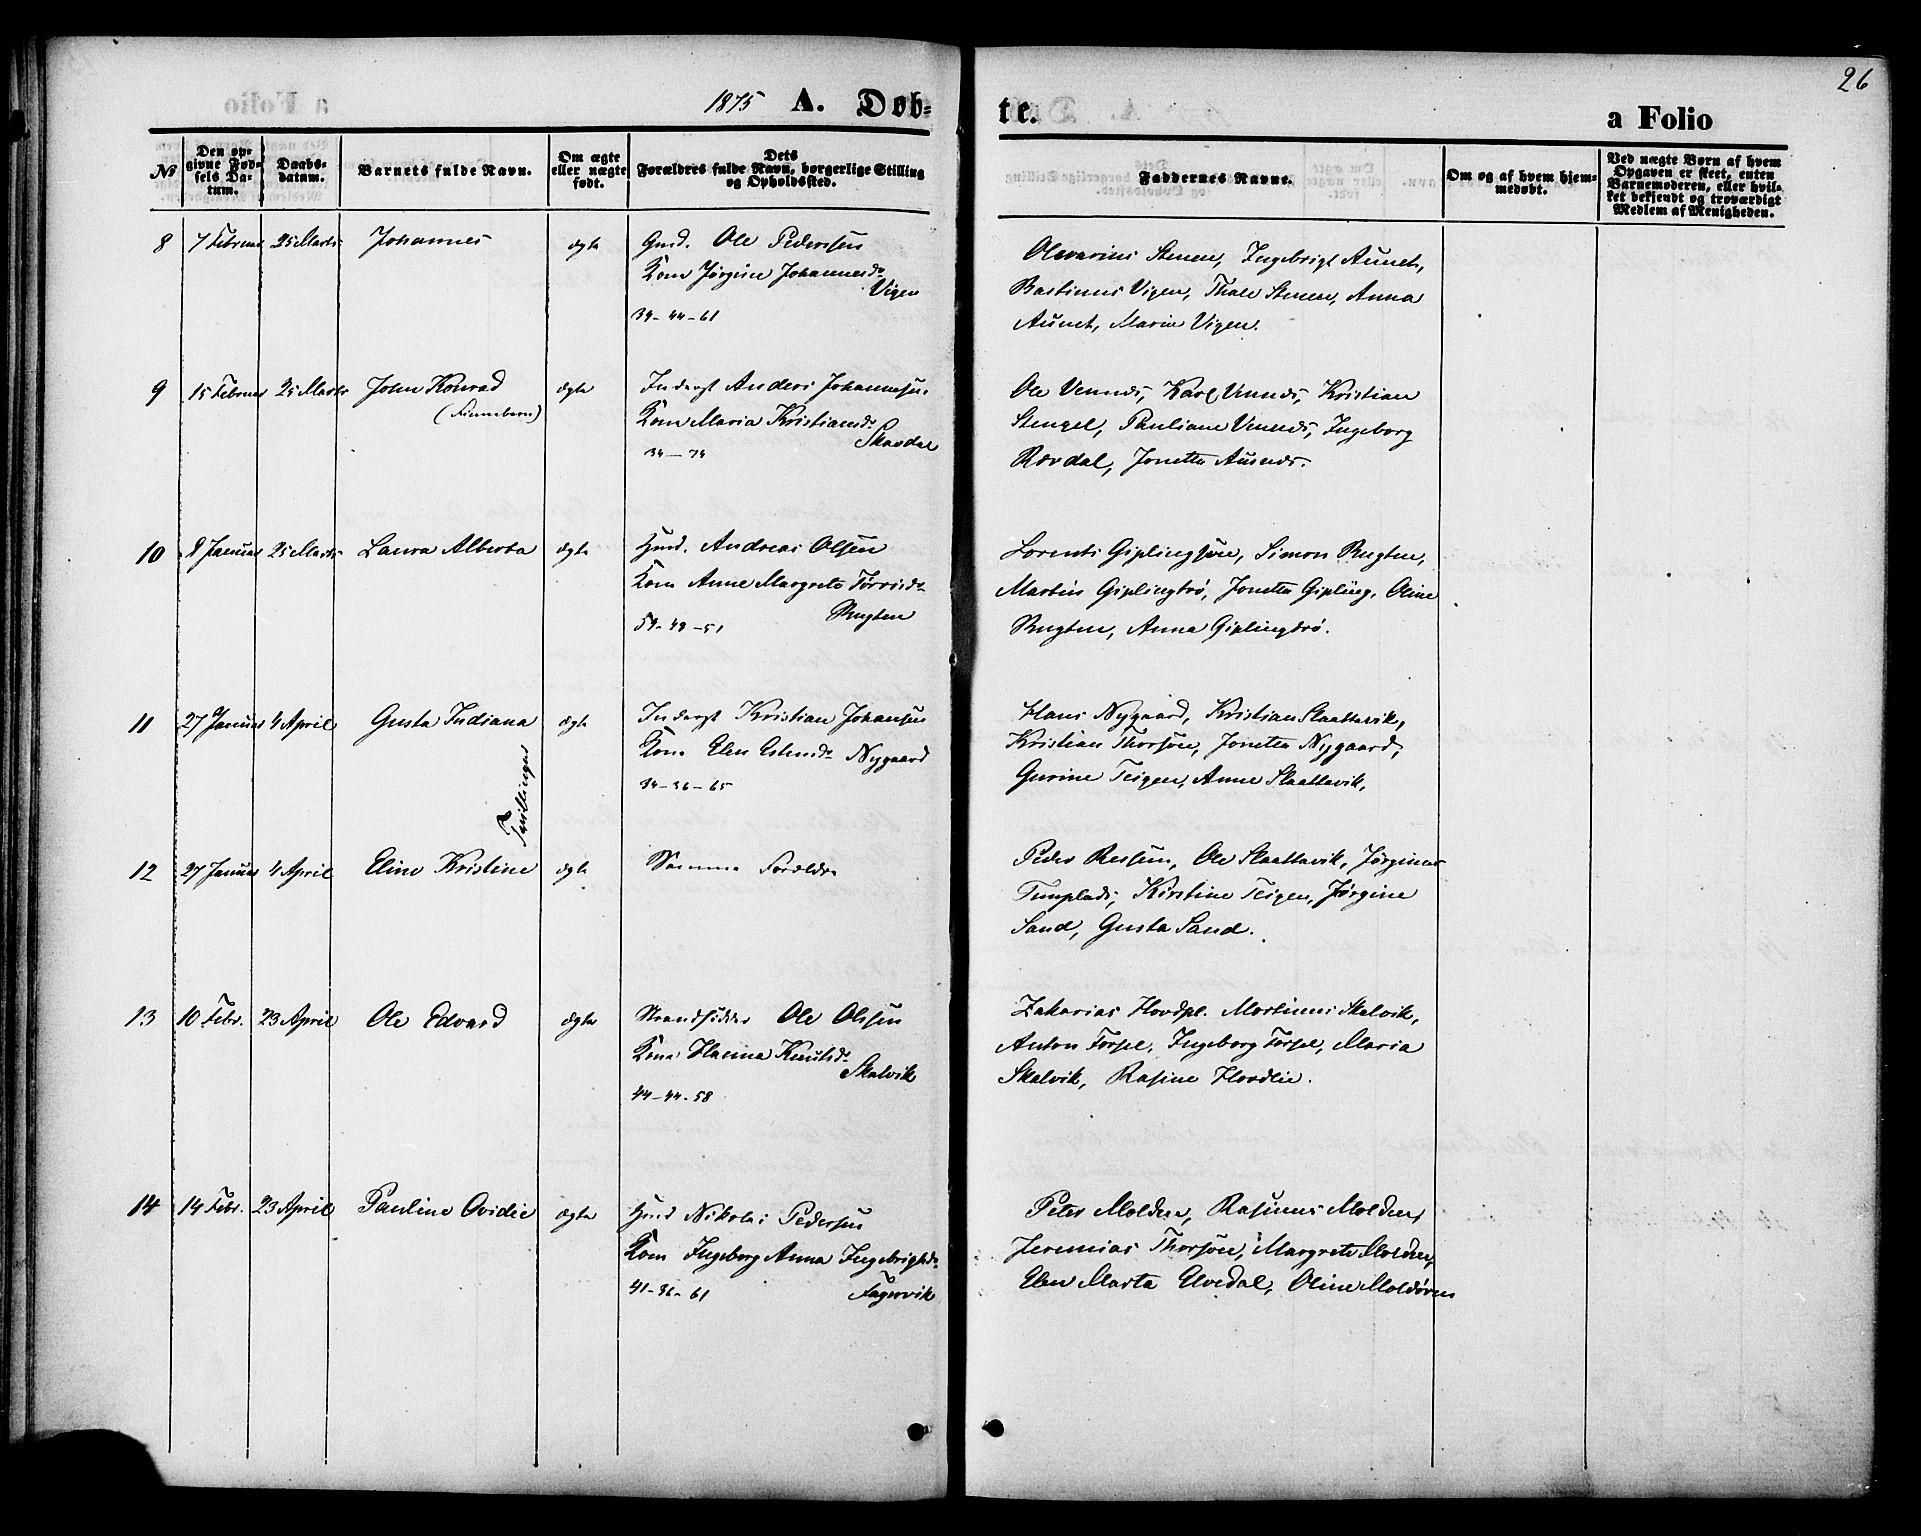 26
1875 A. Døb-
te. a Folio
No
Den op-
givne Fød-
sels Da-
tum.
Daabs-
datum.
Barnets fulde Navn.
Om ægte
eller nægte
født.
Dets
Forældres fulde Navn, borgerlige Stilling
og Opholdssted.
Faddernes Navne.
Om og af hvem hjem-
medøbt.
Ved nægte Børn af hvem
Opgaven er skeet, enten
Barnemoderen, eller hvil-
ket bekjendt og troværdigt
Medlem af Menigheden.
8 7 Februar 25 Marts Johannes ægte Gmd. Ole Pedersen
Kone Jørgine Johannesd.
Vigen
39-44-61
Olevarius Stenen, Ingebrigt Aunet,
Bastinus Vigen, Thale Stenen, Anna
Aunet, Marie Vigen.
9 15 Februar 25 Marts John Konrad ægte Inderst Anders Johannesen
(Finnebarn)
Kone Maria Kristiansd.
Skavdal
34-74
Ole Vennes, Karl Vennes, Kristian
Stengel, Pauliane Vennes, Ingeborg
Rævdal, Jonetta Ausnes.
10 8 Januar 25 Marts Laura Alberta ægte Hmd. Andreas Olsen
Kone Anne Margrete Torrisd.
Rugten
59-49-51
Lorents Giplingsøre, Simon Rugten,
Martin Giplingtrø, Jonetta Gipling, Oline
Rugten, Anna Giplingtrø.
11 27 Januar 4 April Gusta Indiana ægte Inderst Kristian Johansen
Kone Elen Estensd. Nygaard
34-36-65
Tvillinger
Hans Nygaard, Kristian Slaattavik,
Kristian Thorsøen, Jonetta Nygaard,
Gurine Teigen, Anne Slaattavik,
12 27 Januar 4 April Eline Kristine ægte Samme Forældre
Peder Ressem, Ole Slaattavik, Jørginus
Templads, Kirstine Teigen, Jørgine
Sand, Gusta Sand.
13 10 Febr. 23 April Ole Edvard ægte Strandsidder Ole Olsen
Kone Hanna Knutsd.
Skalvik
44-44-58
Zakarias Hovdpl. Martinus Skalvik,
Anton Forpl., Ingeborg Forpl., Maria
Skalvik, Rasine Hovdlie.
14 14 Febr. 23 April Pauline Ovidie ægte Hmd Nikolai Pedersen
Kone Ingeborg Anna Ingebrigtsd.
Fagervik
41-36-61
Peter Molden, Rasinus Molden,
Jeremias Thorsøen, Margrete Molden,
Elen Marta Elvedal, Oline Moldøren